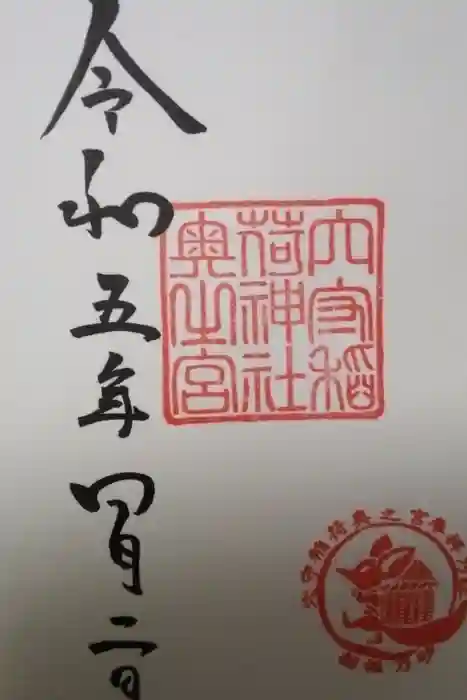 令和五年四月二日
穴守稲
荷神社
奥之宮
穴守稲荷奥之宮